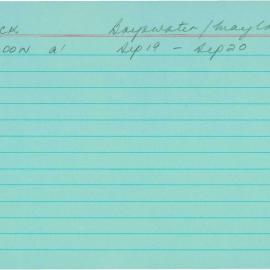 CK Bayswater/Mayla
OON a' Sep 19 - Sep 20